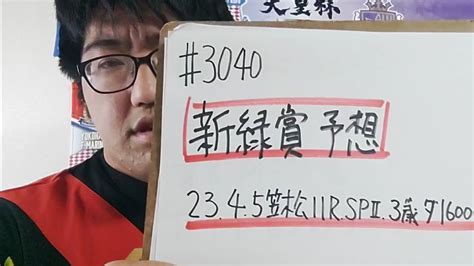 天皇杯
#3040
新緑賞予想
23.4.5笠松11R.SPⅡ.3歳ダ1600